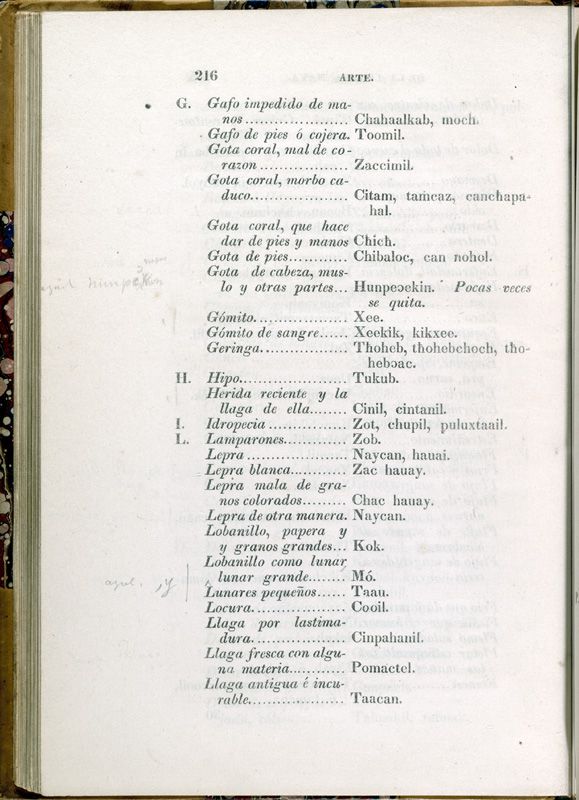 216 ARTE.
G. Gafo impedido de ma-
nos................... Chahaalkab, moch.
Gafo de pies ó cojera. Toomil.
Gota coral, mal de co-
razon................. Zaccimil.
Gota coral, morbo ca-
duco................... Citam, tamcaz, canchapa-
hal.
Gota coral, que hace
dar de pies y manos Chich.
Gota de pies........... Chibaloc, can nohol.
Gota de cabeza, mus-
lo y otras partes... Hunpeɔcekin. Pocas veces
se quita.
Gómito................ Xee.
Gómito de sangre...... Xeekik, kikxee.
Geringa................ Thoheb, thohebchoch, tho-
hebɔac.
H. Hipo..................... Tukub.
Herida reciente y la
llaga de ella........ Cinil, cintanil.
I. Idropecia............... Zot, chupil, puluxtaail.
L. Lamparones............ Zob.
Lepra................... Naycan, hauai.
Lepra blanca.......... Zac hauay.
Lepra mala de gra-
nos colorados......... Chac hauay.
Lepra de otra manera. Naycan.
Lobanillo, papera y
y granos grandes... Kok.
Lobanillo como lunar
lunar grande........ Mó.
Lunares pequeños...... Taau.
Locura.................. Cooil.
Llaga por lastima-
dura.................. Cinpahanil.
Llaga fresca con algu-
na materia........... Pomactel.
Llaga antigua é incu-
rable................... Taacan.